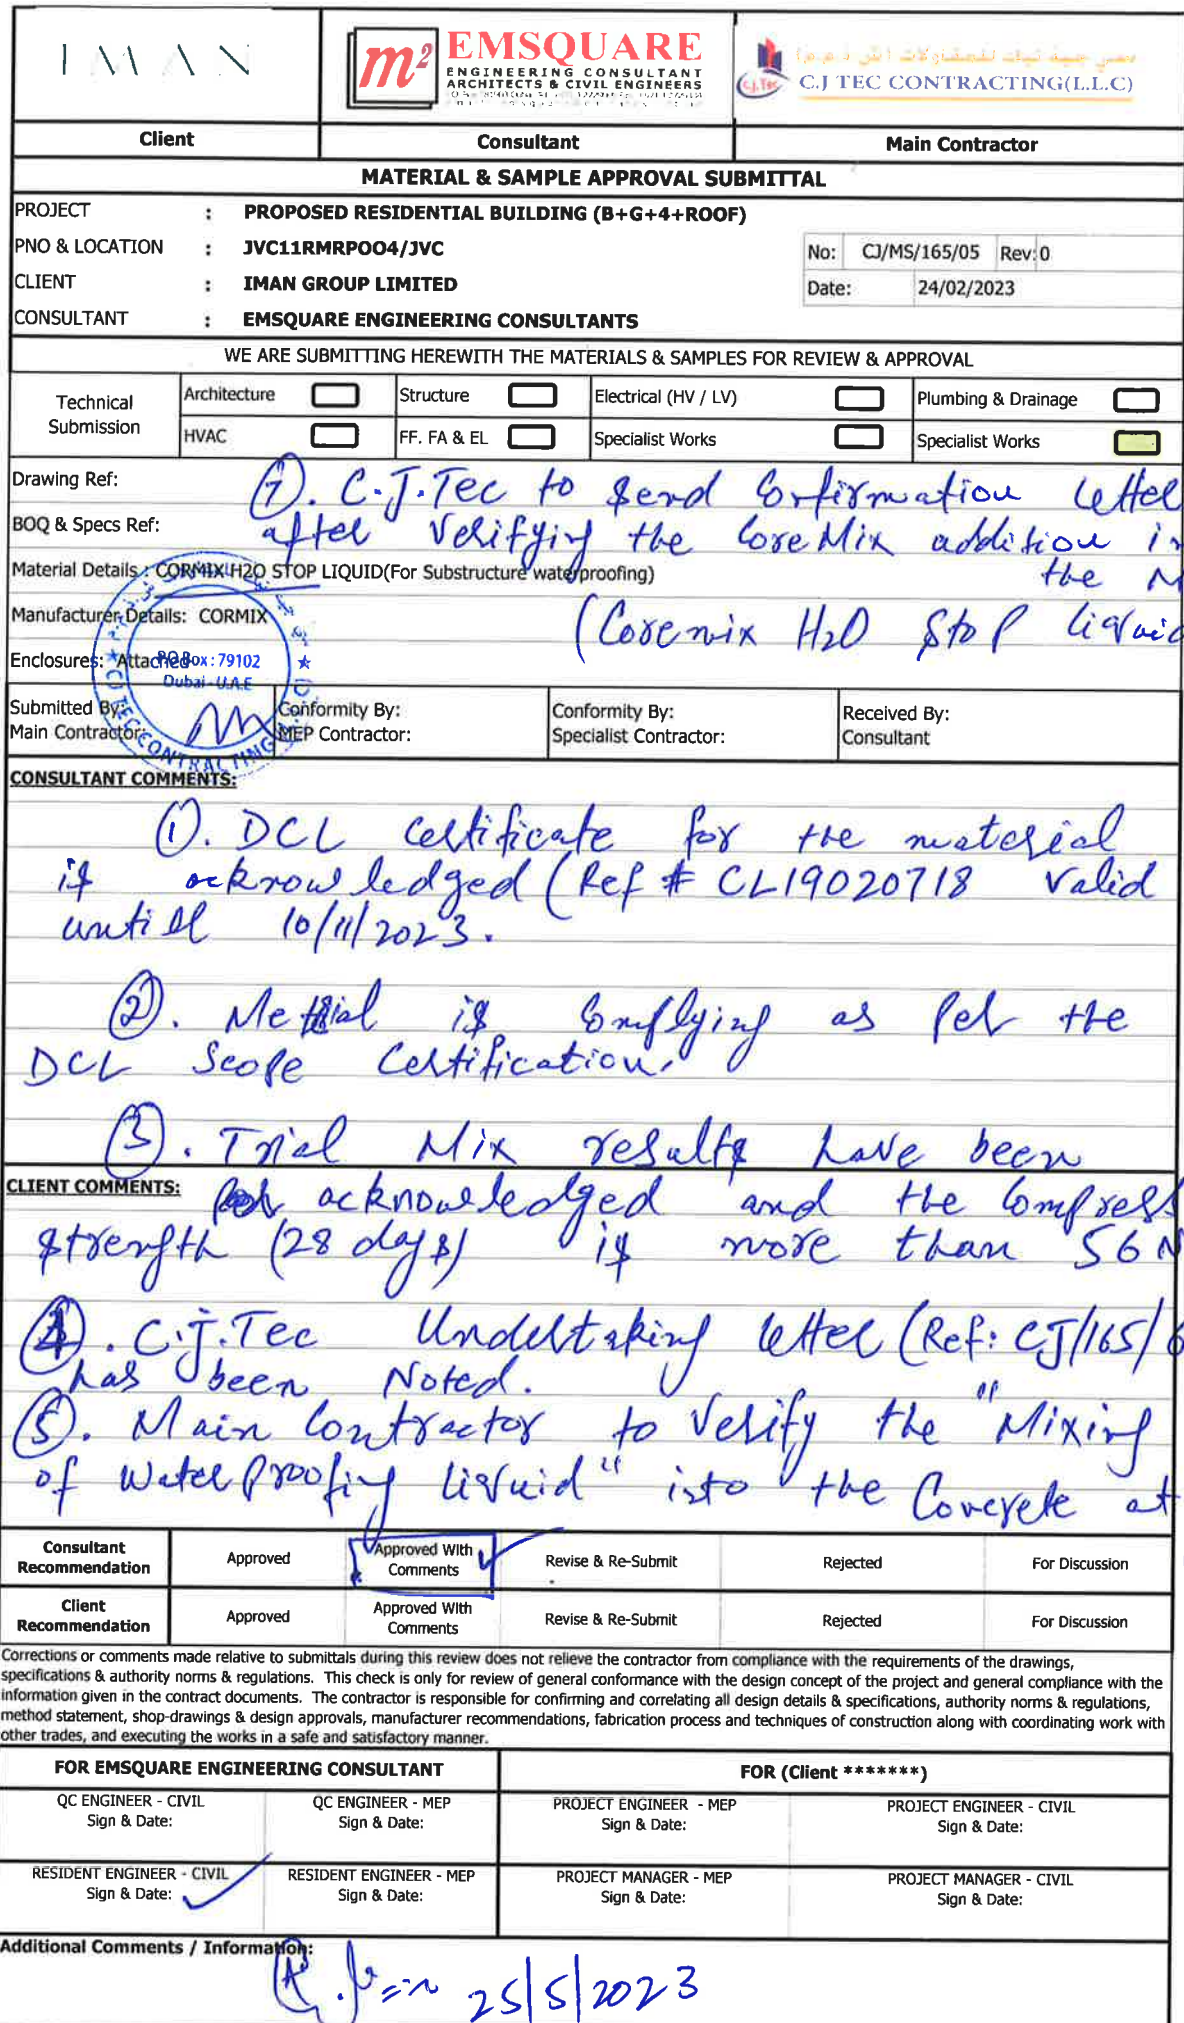 IMAN
m² EMSQUARE
ENGINEERING CONSULTANT
ARCHITECTS & CIVIL ENGINEERS
C.J.Tec
C.J TEC CONTRACTING(L.L.C)
Client
Consultant
Main Contractor
MATERIAL & SAMPLE APPROVAL SUBMITTAL
PROJECT : PROPOSED RESIDENTIAL BUILDING (B+G+4+ROOF)
PNO & LOCATION : JVC11RMRPOO4/JVC
No: CJ/MS/165/05 Rev:0
CLIENT : IMAN GROUP LIMITED
Date: 24/02/2023
CONSULTANT : EMSQUARE ENGINEERING CONSULTANTS
WE ARE SUBMITTING HEREWITH THE MATERIALS & SAMPLES FOR REVIEW & APPROVAL
Technical Submission
Architecture
Structure
Electrical (HV / LV)
Plumbing & Drainage
HVAC
FF. FA & EL
Specialist Works
Specialist Works
Drawing Ref:
7. C.J.Tec to send Confirmation letter
BOQ & Specs Ref:
after Verifying the CoreMix addition in
Material Details : CORMIX H2O STOP LIQUID(For Substructure waterproofing)
the M
Manufacturer Details: CORMIX
(Coremix H2O Stop liquid
Enclosures: Attached
P.O.Box : 79102
Dubai - U.A.E
CJ TEC CONTRACTING
Submitted By:
Main Contractor:
Conformity By:
MEP Contractor:
Conformity By:
Specialist Contractor:
Received By:
Consultant
CONSULTANT COMMENTS:
1. DCL Certificate for the material
is acknowledged (Ref # CL19020718 Valid
untill 10/11/2023.
2. Material is Complying as Per the
DCL Scope Certification.
3. Trial Mix results have been
CLIENT COMMENTS:
acknowledged and the Compress
strength (28 days) is more than 56 N
4. C.J.Tec Undertaking letter (Ref: CJ/165/6
has been Noted.
5. Main Contractor to Verify the "Mixing
of Waterproofing liquid" into the Concrete at
Consultant Recommendation
Approved
Approved With Comments
Revise & Re-Submit
Rejected
For Discussion
Client Recommendation
Approved
Approved With Comments
Revise & Re-Submit
Rejected
For Discussion
Corrections or comments made relative to submittals during this review does not relieve the contractor from compliance with the requirements of the drawings,
specifications & authority norms & regulations. This check is only for review of general conformance with the design concept of the project and general compliance with the
information given in the contract documents. The contractor is responsible for confirming and correlating all design details & specifications, authority norms & regulations,
method statement, shop-drawings & design approvals, manufacturer recommendations, fabrication process and techniques of construction along with coordinating work with
other trades, and executing the works in a safe and satisfactory manner.
FOR EMSQUARE ENGINEERING CONSULTANT
FOR (Client *******)
QC ENGINEER - CIVIL
Sign & Date:
QC ENGINEER - MEP
Sign & Date:
PROJECT ENGINEER - MEP
Sign & Date:
PROJECT ENGINEER - CIVIL
Sign & Date:
RESIDENT ENGINEER - CIVIL
Sign & Date:
RESIDENT ENGINEER - MEP
Sign & Date:
PROJECT MANAGER - MEP
Sign & Date:
PROJECT MANAGER - CIVIL
Sign & Date:
Additional Comments / Information:
25/5/2023